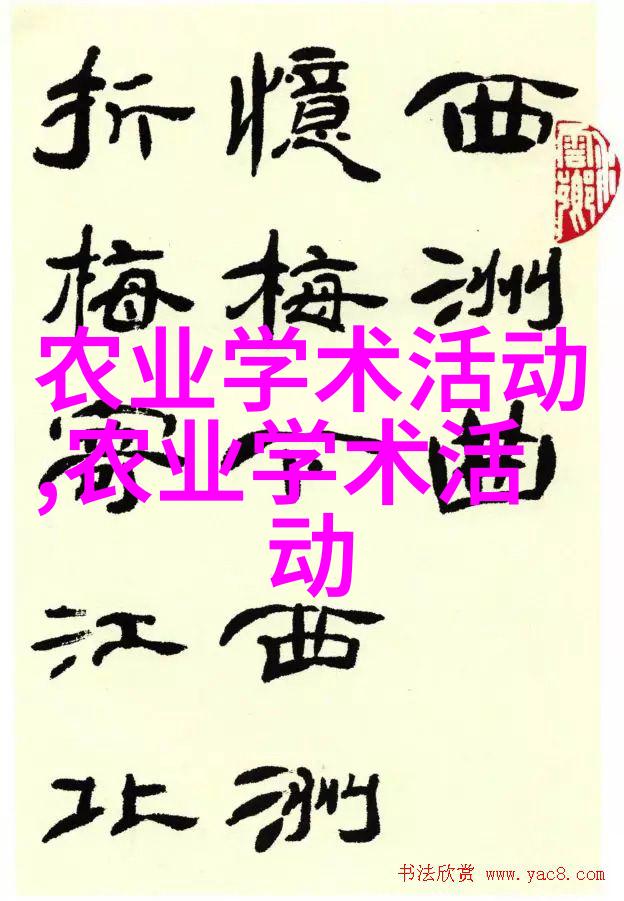 西洲曲
憶梅下西洲
折梅寄江北
农业学术活动
,农业学术活
动
书法欣赏 www.yac8.com